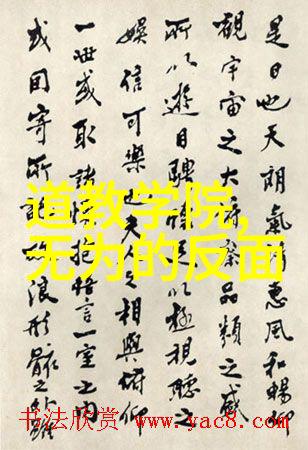 是日也天朗氣清惠風和暢仰
觀宇宙之大俯察品類之盛
所以遊目騁懷足以極視聽之
娛信可樂也夫人之相與俯仰
一世或取諸懷抱悟言一室之內
或因寄所託浪形骸之外雖
道教学院,
无为的反面
书法欣赏 www.yac8.com